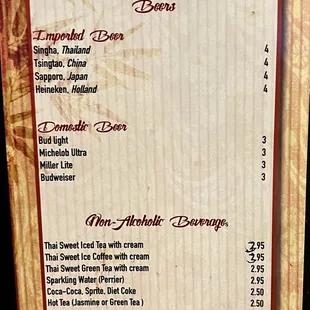 Beers
Imported Beer
Singha, Thailand 4
Tsingtao, China 4
Sapporo, Japan 4
Heineken, Holland 4
Domestic Beer
Bud light 3
Michelob Ultra 3
Miller Lite 3
Budweiser 3
Non-Alcoholic Beverages
Thai Sweet Iced Tea with cream 3.95
Thai Sweet Ice Coffee with cream 3.95
Thai Sweet Green Tea with cream 2.95
Sparkling Water (Perrier) 2.95
Coca-Coca, Sprite, Diet Coke 2.50
Hot Tea (Jasmine or Green Tea ) 2.50